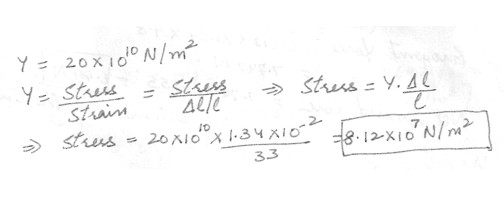 Y = 20×10¹⁰ N/m²
Y = Stress/Strain = Stress/Δl/l ⇒ Stress = Y. Δl/l
⇒ Stress = 20×10¹⁰ × 1.34×10⁻²/33 = 8.12×10⁷ N/m²